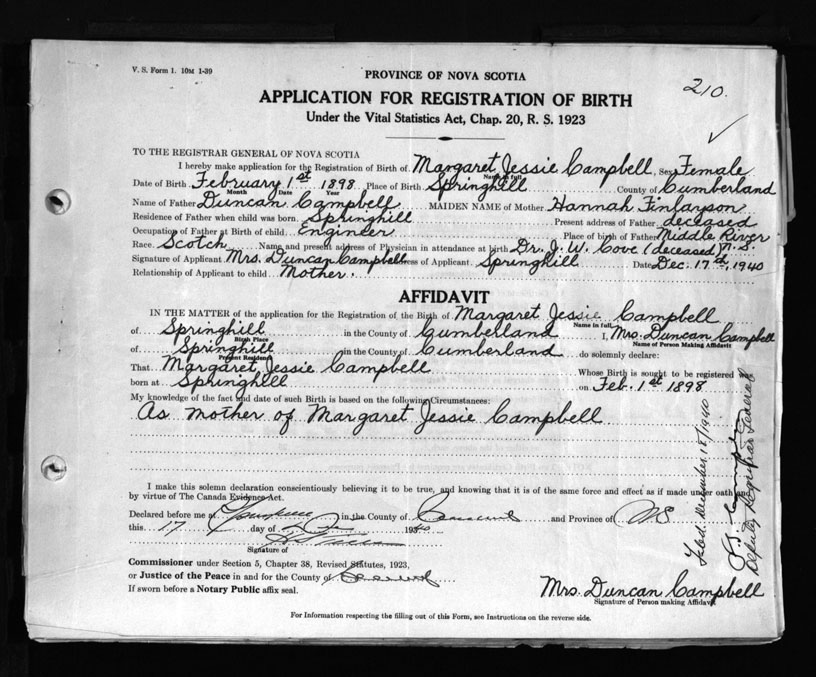 V. S. Form 1. 10M 1-39
PROVINCE OF NOVA SCOTIA
210.
APPLICATION FOR REGISTRATION OF BIRTH
Under the Vital Statistics Act, Chap. 20, R. S. 1923
TO THE REGISTRAR GENERAL OF NOVA SCOTIA
I hereby make application for the Registration of Birth of Margaret Jessie Campbell, Sex Female
Name in full
Date of Birth February 1st 1898 Place of Birth Springhill County of Cumberland
Month Date Year
Name of Father Duncan Campbell MAIDEN NAME of Mother Hannah Finlayson
Residence of Father when child was born Springhill Present address of Father deceased
Occupation of Father at Birth of child Engineer Place of birth of Father Middle River
Race Scotch Name and present address of Physician in attendance at birth Dr. J. W. Cove (deceased) N.S.
Signature of Applicant Mrs. Duncan Campbell Address of Applicant Springhill Date Dec. 17d, 1940
Relationship of Applicant to child Mother.
AFFIDAVIT
IN THE MATTER of the application for the Registration of the Birth of Margaret Jessie Campbell
Name in full
of Springhill in the County of Cumberland I, Mrs. Duncan Campbell
Birth Place Name of Person Making Affidavit
of Springhill in the County of Cumberland do solemnly declare:
Present Residence
That Margaret Jessie Campbell Whose Birth is sought to be registered
born at Springhill on Feb. 1st 1898
My knowledge of the fact and date of such Birth is based on the following Circumstances:
As mother of Margaret Jessie Campbell
I make this solemn declaration conscientiously believing it to be true, and knowing that it is of the same force and effect as if made under oath and
by virtue of The Canada Evidence Act.
Declared before me at in the County of and Province of NS
this 17 day of 1940
Signature of
Commissioner under Section 5, Chapter 38, Revised Statutes, 1923,
or Justice of the Peace in and for the County of
If sworn before a Notary Public affix seal.
Mrs. Duncan Campbell
Signature of Person making Affidavit
For Information respecting the filling out of this Form, see Instructions on the reverse side.
December 18/1940
Deputy Registrar General